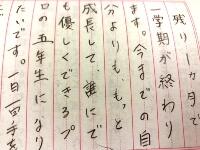 残り一カ月で
一学期が終わり
ます。今までの自
分よりももっと
成長して、誰にで
も優しくできるプ
ロの五年生になり
たいです。一日一回手を